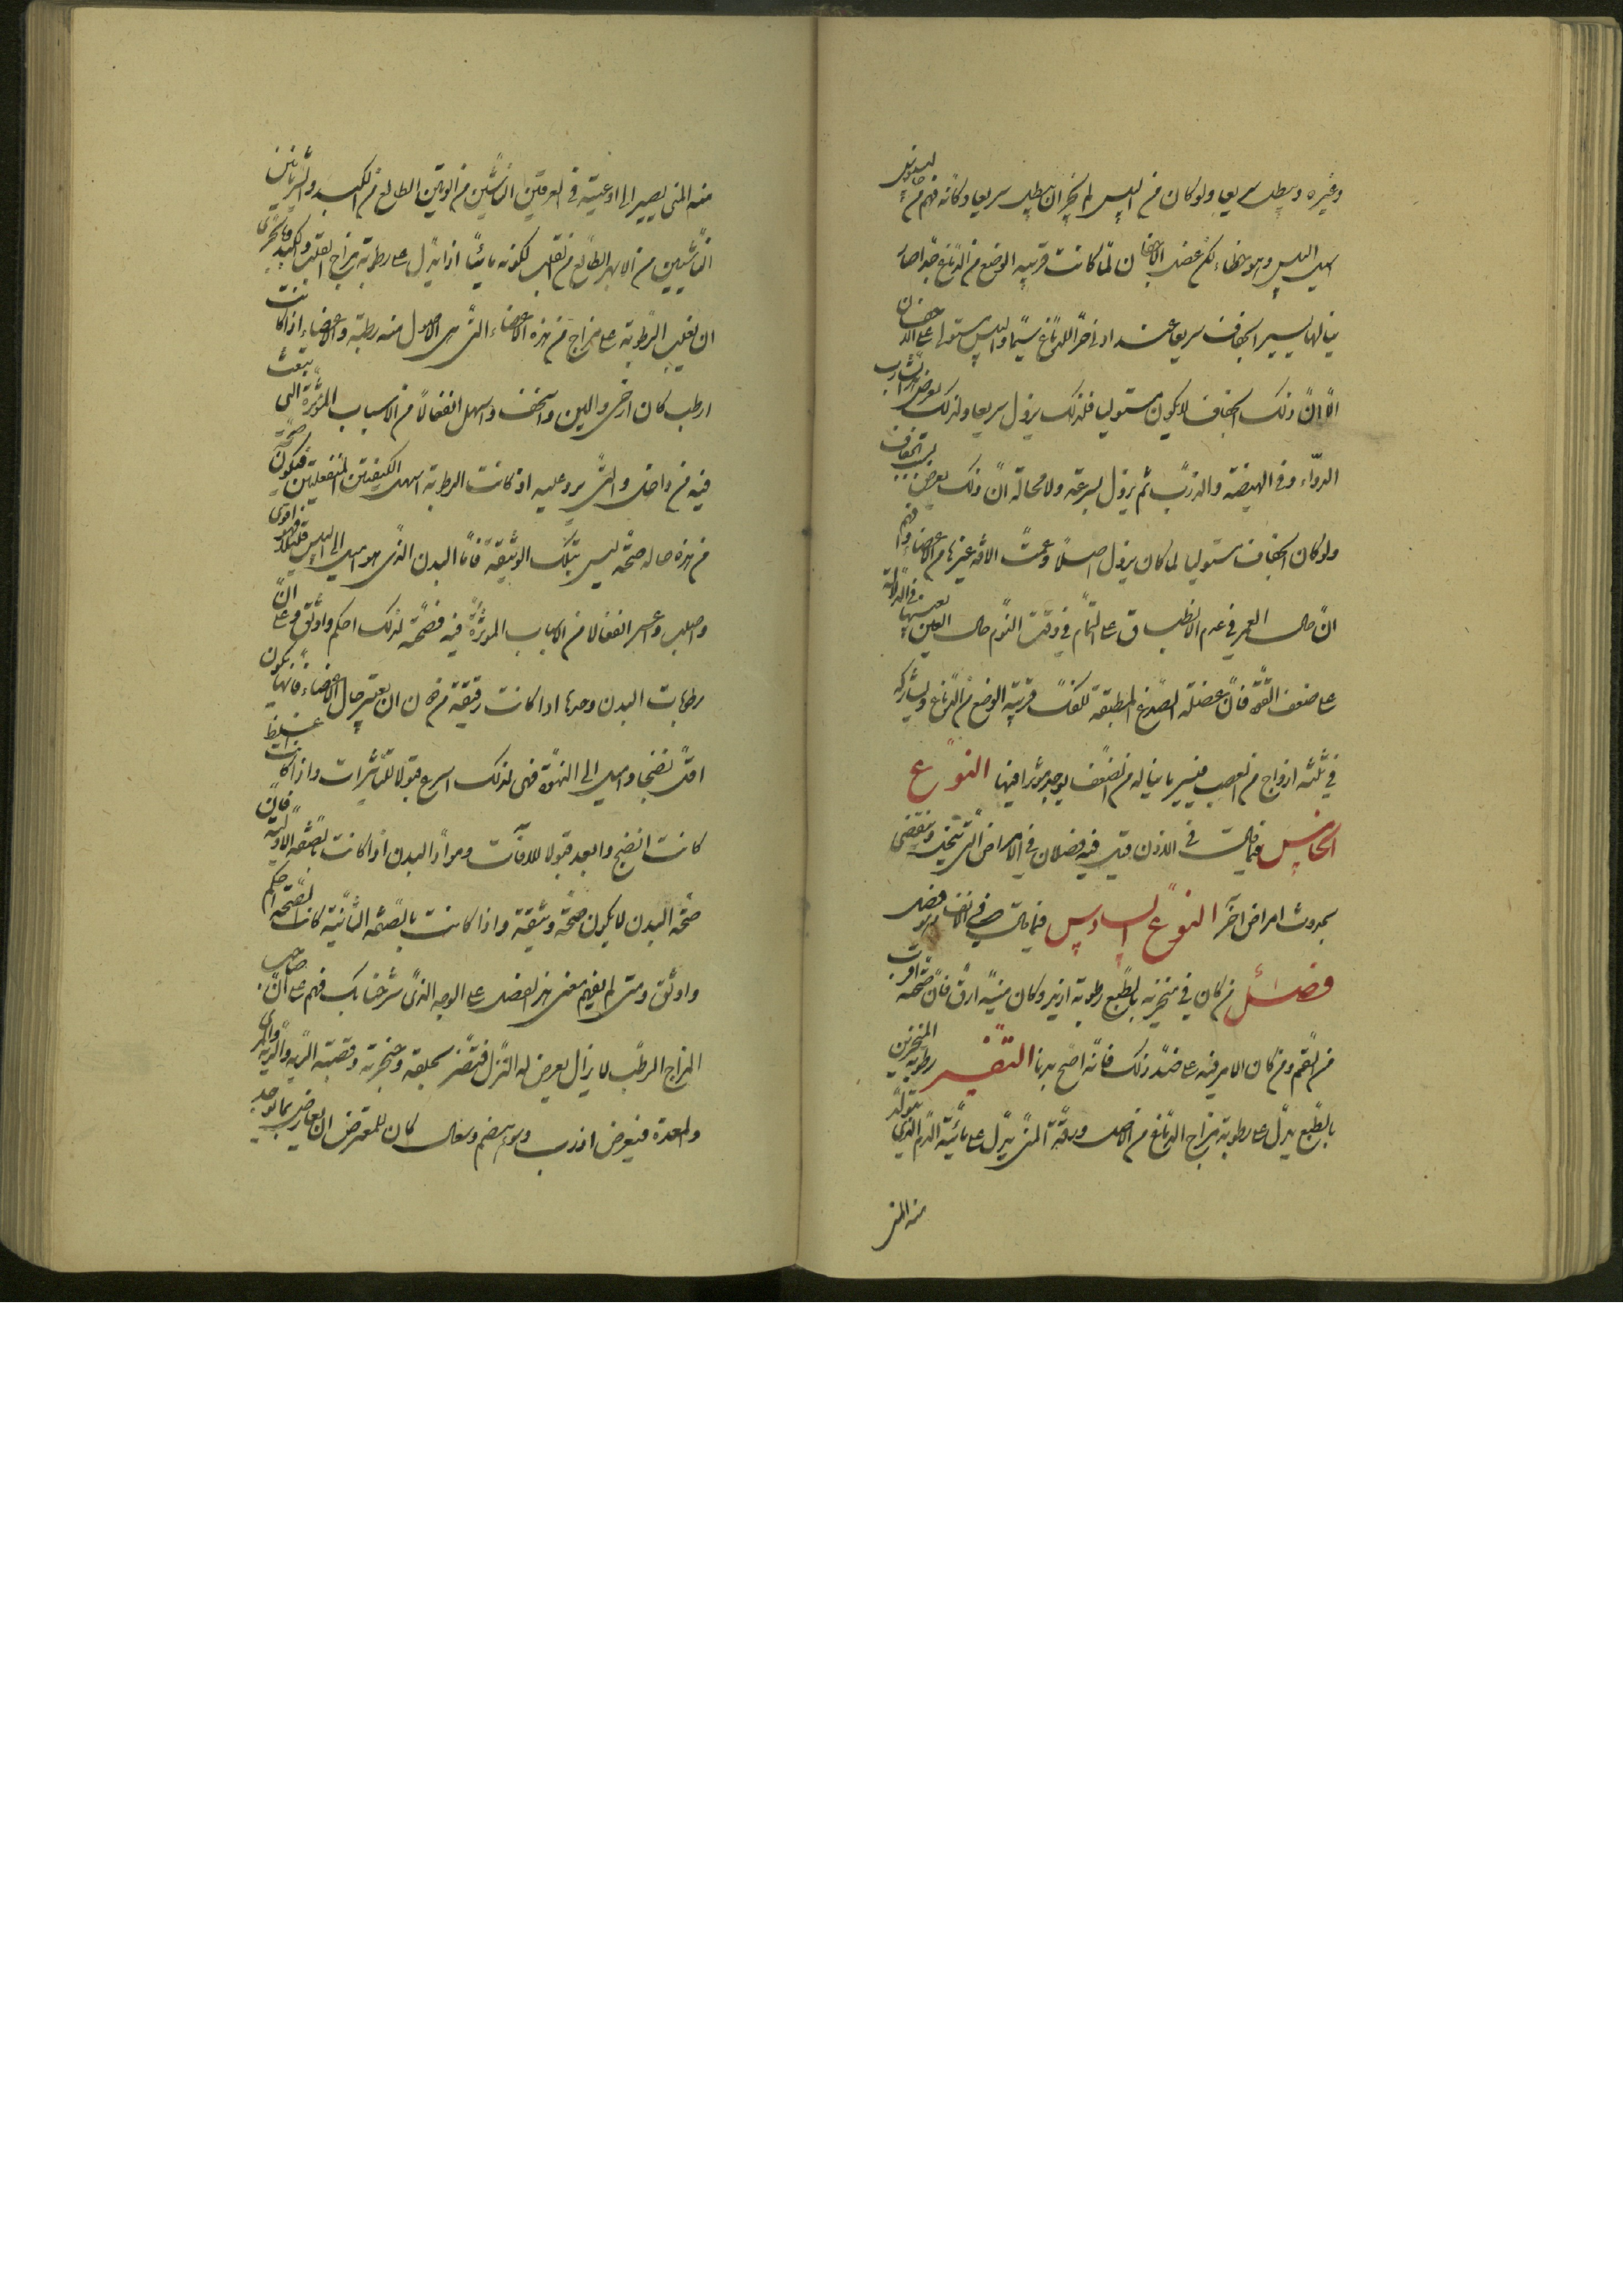 وغيره ويبطل سريعا ولو كان من اليبس لم يجز ان يبطل سريعا وكانه فهم من
اليبس وهو خطاء لكن عضل الاجفان لما كانت قريبه الوضع من الدماغ جدا صار
ينالها يسير الجفاف سريعا عند ادنى حر الدماغ سيما واليبس مستولى على الاجفان
الا ان ذلك الجفاف لا يكون مستوليا فلذلك يزول سريعا ولذلك يعرض لشارب
الدواء وفى الهيضة والذرب ثم يزول بسرعة ولا محالة ان ذلك يعرض
ولو كان الجفاف مستوليا لما كان يزول اصلا وعمت الافة غيرها من الاعضاء
ان حال الفم في عدم الانطباق على التمام في وقت النوم حال العين
على ضعف القوة فان عضلة الصدغ المطبقة للفك قريبة الوضع من الدماغ ويشاركه
في ثلثة ازواج من العصب فيسير ما يناله من الضعف يوجد مؤثرا فيها النوع
الخامس فيما قال في الاذن قيل فيه فصلان في الامراض التى وتنقضى
بحدوث امراض اخر النوع السادس فيما قال في الانف فصل
فصل من كان في منخريه بالطبع رطوبة ازيد وكان منيه ارق فان صحته اقرب
من السقم ومن كان الامر فيه على ضد ذلك فانه اصح بدنا التفسير رطوبة المنخرين
بالطبع يدل على رطوبة مزاج الدماغ من الاصل ورقة المنى يدل على مائية الدم الذي يتولد
منه المنى
منه المنى يصير الى اوعيته فى العرقين الناشئين من الوتين الطالع من الكبد والشريانين
الناشئين من الابهر الطالع من القلب لكونه مائيا اذا يدل على رطوبة مزاج القلب والكبد
ان تغلب الرطوبة على مزاج من هذه الاعضاء التى هى الاصول منه رطبة والاعضاء اذا كانت
ارطب كان ارخى والين واسخف واسهل انفعالا من الاسباب المؤثرة التى تنبعث
فيه من داخل والتى يرد عليه اذ كانت الرطوبة اسهل الكيفيتين المنفعلتين فيكون صحة
من هذه حاله صحة ليس بتلك الوثيقة فاما البدن الذى هو اميل الى اليبس قليلا فهو اقوى
واصلب واعسر انفعالا من الاسباب المؤثرة فيه فصحته لذلك احكم واوثق وعلى ان
رطوبات البدن وحدها اذا كانت رقيقة من دون ان يعتبر حال الاعضاء فانها يكون
اقل نضجا واميل الى النهوة فهى لذلك اسرع قبولا للتاثيرات واذا كانت غليظة
كانت انضج وابعد قبولا للافات ومواد البدن اذا كانت بالصفة الاولية فان
صحة البدن لا يكون صحة وثيقة واذا كانت بالصفة الثانية كانت الصحة احكم
واوثق ومتى لم يفهم معنى هذا الفصل على الوجه الذى شرحنا بل فهم على ان صاحب
المزاج الرطب لا يزال يعرض له النزل فتضر بحلقه وحنجرته وقصبة الرية والرية والمرى
والمعدة فيعرض اذرب وسوء هضم وسعال كان للمعترض ان يعارض بما يوجد